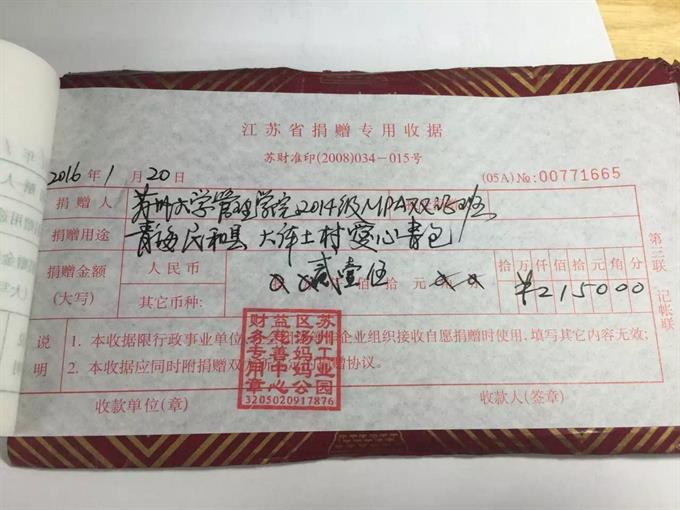 江苏省捐赠专用收据
苏财准印(2008)034-015号
2016年1月20日 (05A)No:00771665
捐赠人 苏州大学管理学院2014级MPA双证班
捐赠用途 青海民和县 大庄土村爱心书包
捐赠金额(大写) 人民币 贰壹伍 佰拾元角 拾万仟佰拾元角分 ¥215000
其它币种:
说明 1. 本收据限行政事业单位 企业组织接收自愿捐赠时使用,填写其它内容无效;
2. 本收据应同时附捐赠双 赠协议。
收款单位(章) 收款人(签章)
第三联 记帐联
苏州工业园区汤妈妈公益慈善中心财务专用章
3205020917876